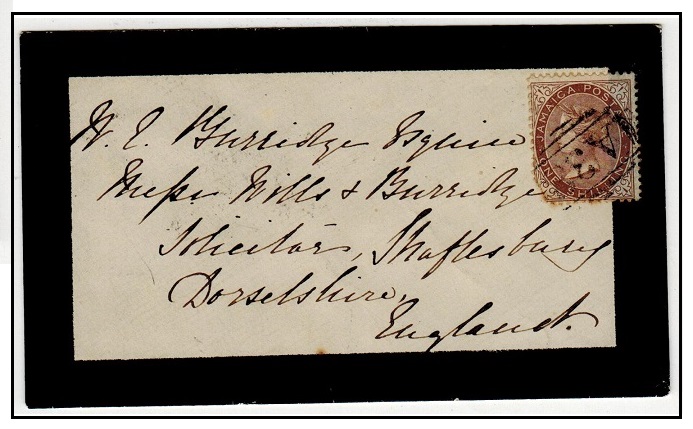 W. E. Burridge Esquire
Messrs Wills & Burridge,
Solicitors, Shaftesbury
Dorsetshire,
England.
JAMAICA POSTAGE
ONE SHILLING
A